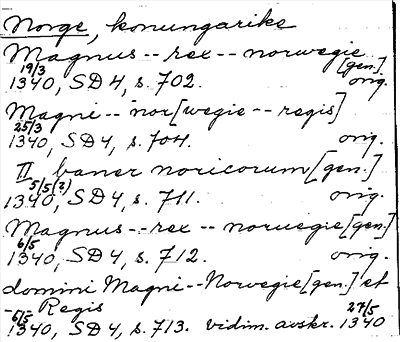 Norge, konungarike
Magnus -- rex -- norwegie [gen.]
19/3 1340, SD 4, s. 702. orig.
Magni -- nor[wegie -- regis]
25/3 1340, SD 4, s. 704. orig.
II baner noricorum [gen.]
5/5(?) 1340, SD 4, s. 711. orig.
Magnus -- rex -- noruegie [gen.]
6/5 1340, SD 4, s. 712. orig.
domini Magni -- Norwegie [gen.] et
- Regis
6/5 1340, SD 4, s. 713. vidim. avskr. 27/5 1340